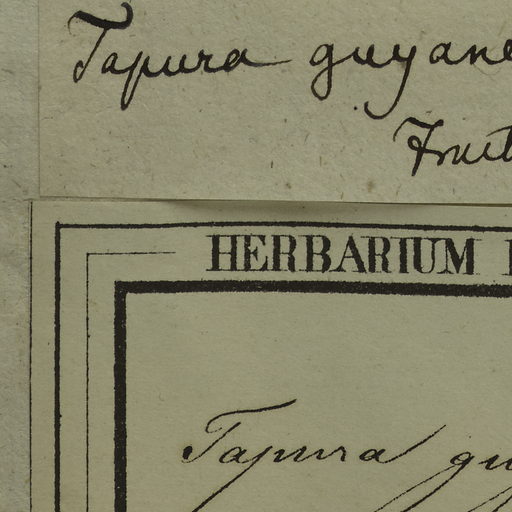 Tapura guyane
Fruct
HERBARIUM
Tapura gu